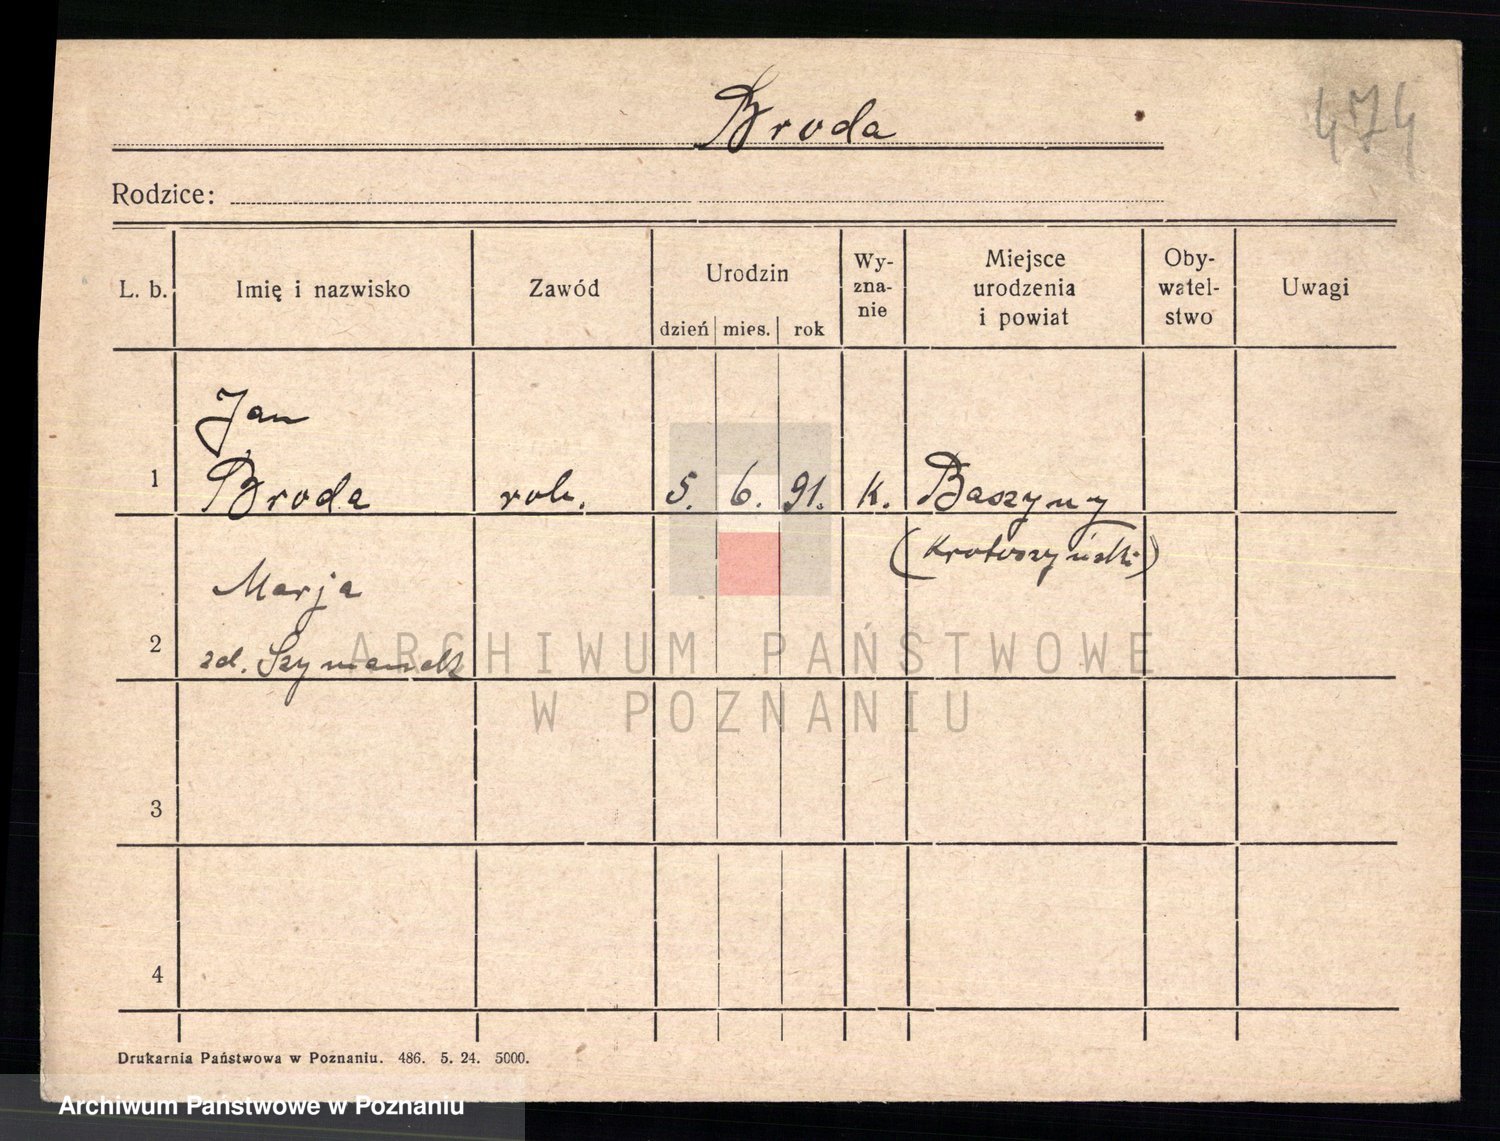 Broda
474
Rodzice:
L. b.
Imię i nazwisko
Zawód
Urodzin
dzień mies. rok
Wy-
zna-
nie
Miejsce
urodzenia
i powiat
Oby-
watel-
stwo
Uwagi
Jan
1 Broda rob. 5. 6. 91. K. Baszyny
(Krotoszyński)
Marja
2 zd. Szymanek
3
4
ARCHIWUM PAŃSTWOWE
W POZNANIU
Drukarnia Państwowa w Poznaniu. 486. 5. 24. 5000.
Archiwum Państwowe w Poznaniu